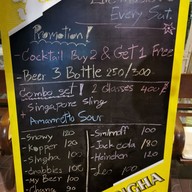 Every Sat.
Promotion!
- Cocktail Buy 2 & Get 1 Free
- Beer 3 Bottle 250/300.
Combo set! 2 classes 400฿
Singapore Sling
+ Amaretto Sour
- Snowy 120
- Kopper 120
- Singha 100
- Crabbies 160
- My Beer 100
- Chang 90
- Smirnoff 100
- Jack cola 180
- Heineken 120
- Leo 100
SINGHA